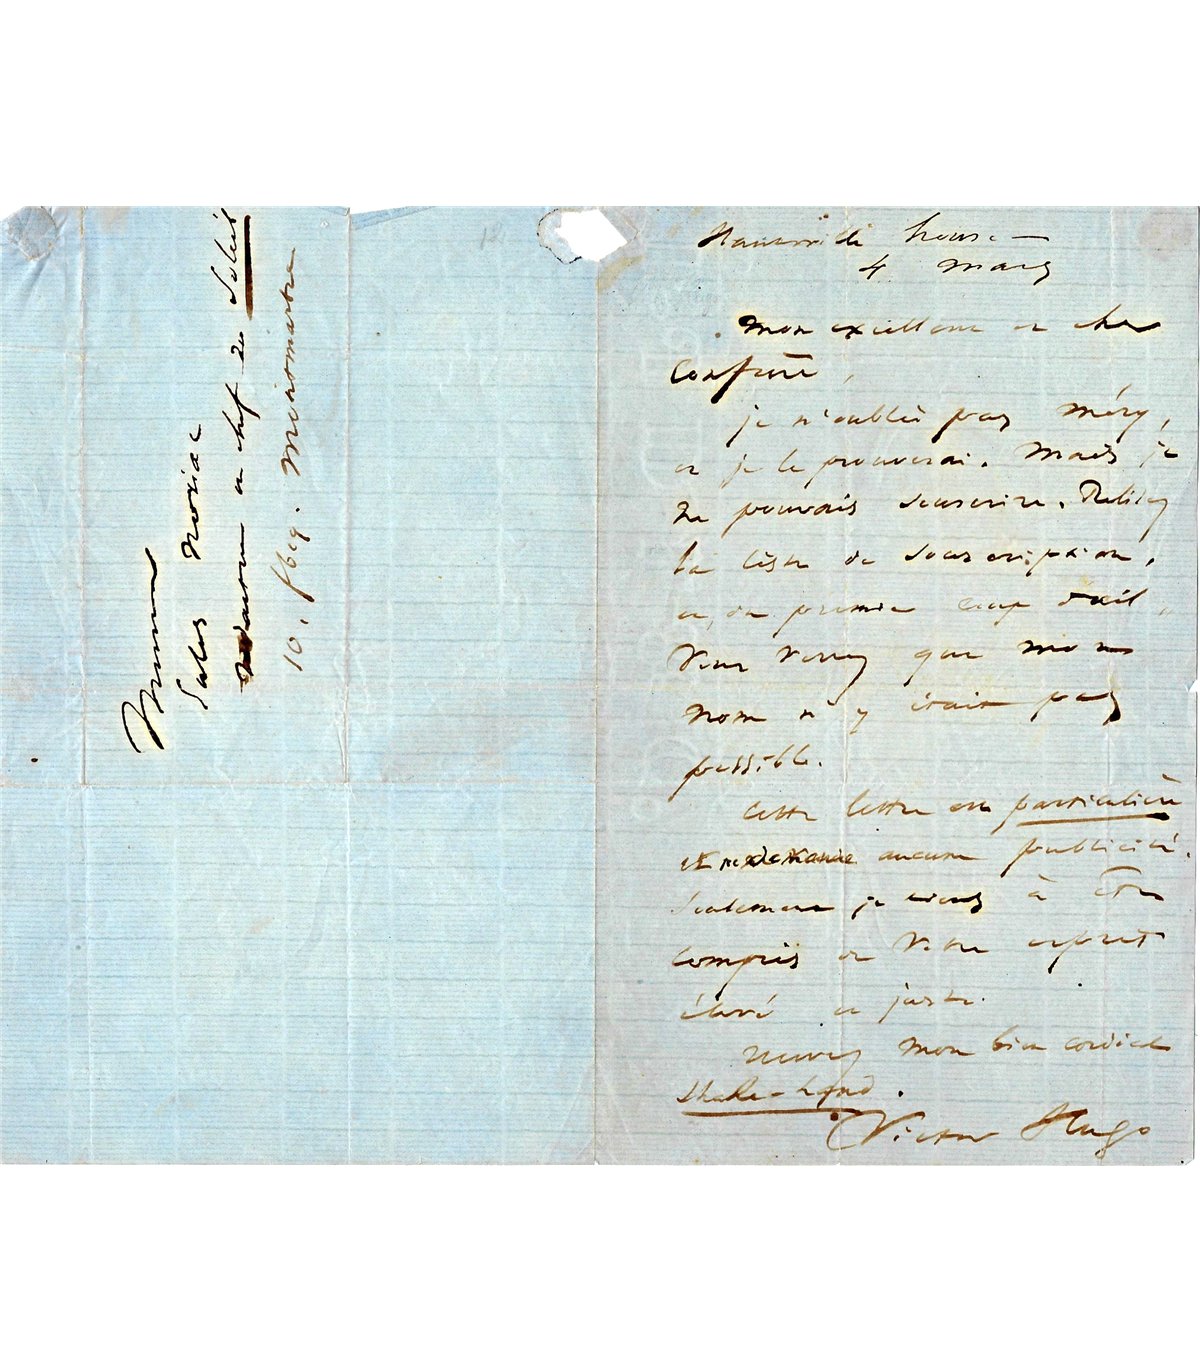 Monsieur
Jules Noriac
rédacteur en chef du Soleil
10, fbg. Montmartre
Hauteville house –
4 mars
Mon excellent et cher
Confrère,
je n'oublie pas Méry,
et je le prouverai. Mais je
ne pouvais souscrire. Relisez
la liste de souscription,
et, du premier coup d'œil,
vous verrez que mon
nom n'y était pas
possible.
Cette lettre est particulière
et ne demande aucune publicité.
Seulement je tiens à être
compris de votre esprit
élevé et juste.
Recevez mon bien cordial
shake-hand.
Victor Hugo